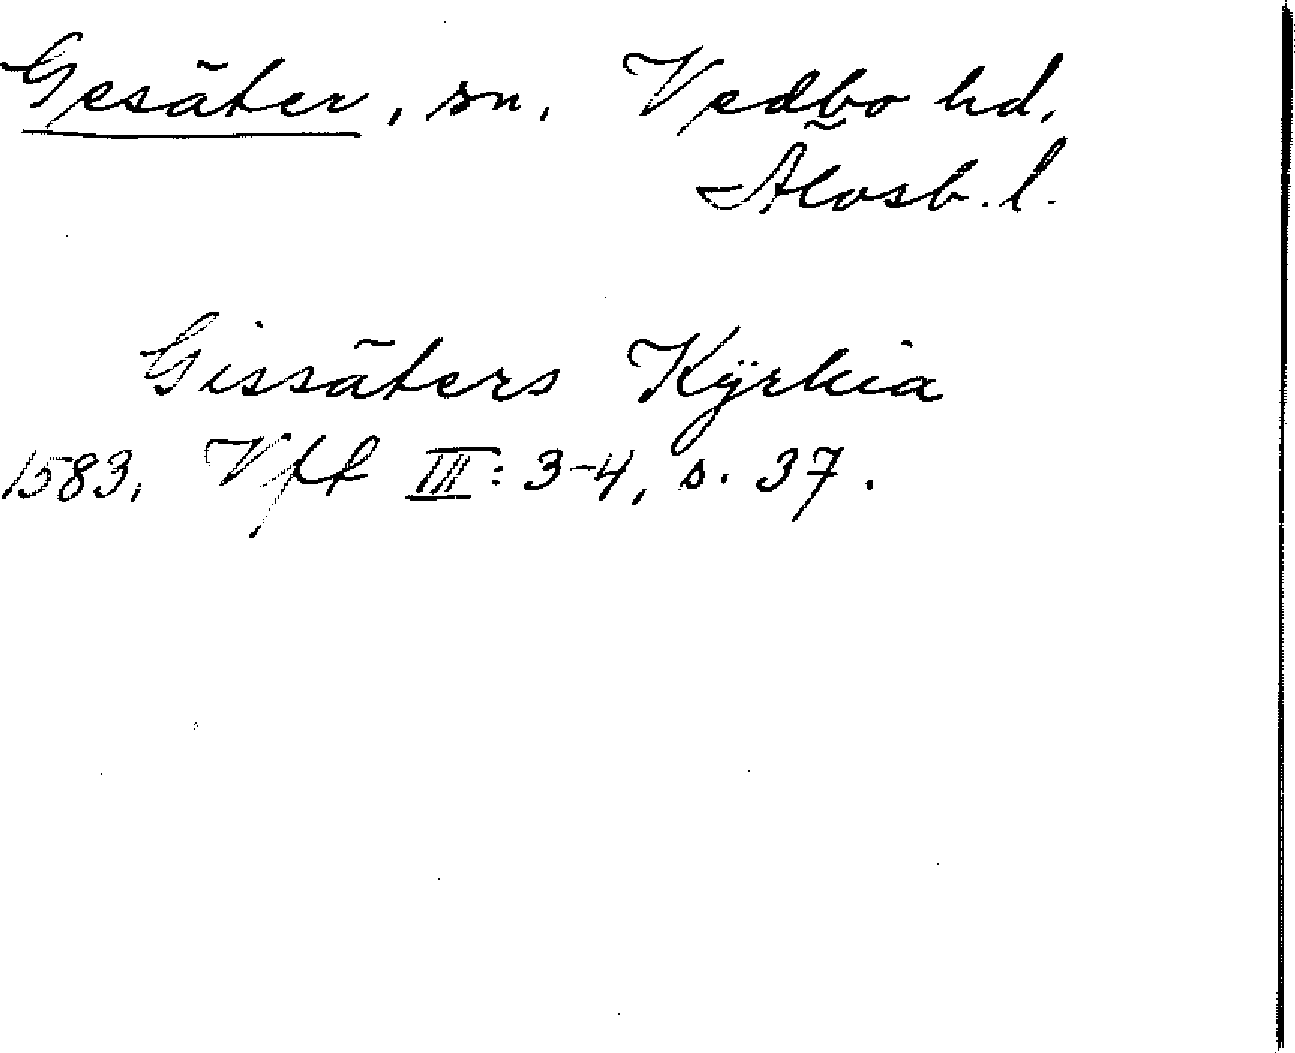 Gesäter, sn. Vedbo hd.
Älvsb. l.
Gissäters Kÿrkia
1583. Vft III: 3-4, s. 37.